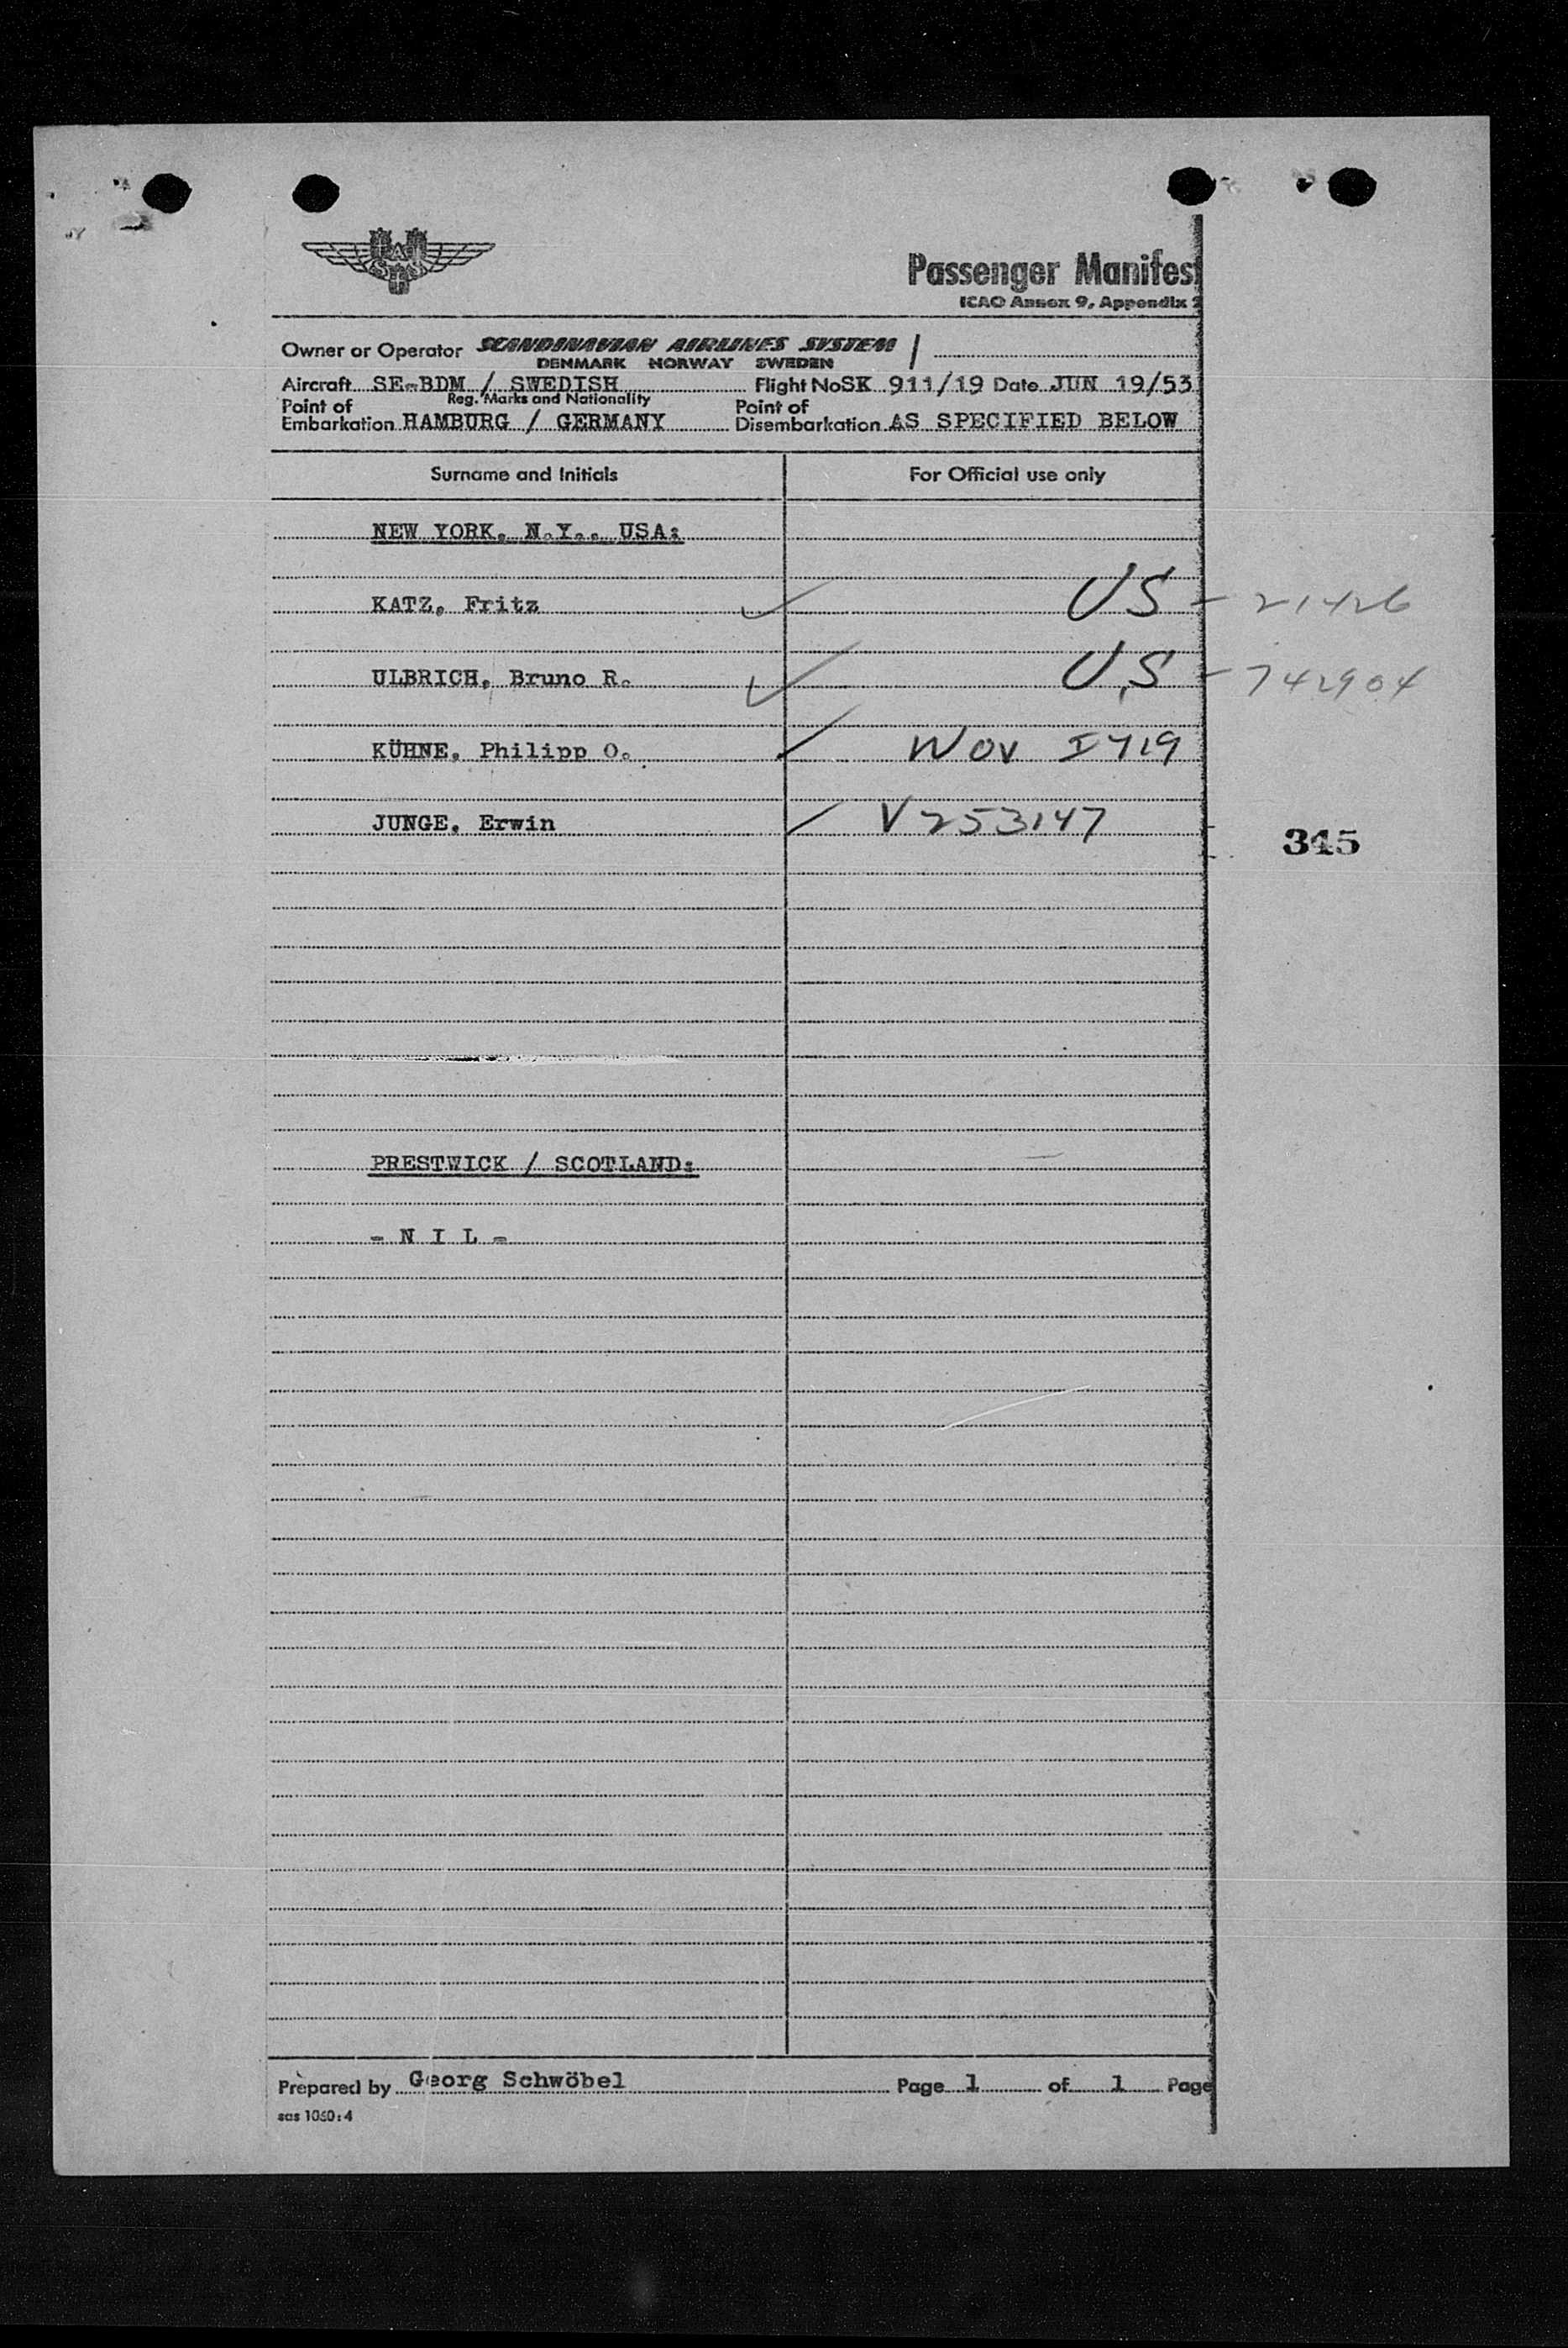 SAS
Passenger Manifest
ICAO Annex 9, Appendix 2
Owner or Operator SCANDINAVIAN AIRLINES SYSTEM
DENMARK NORWAY SWEDEN
Aircraft SE-BDM / SWEDISH Flight No SK 911/19 Date JUN 19/53
Reg. Marks and Nationality
Point of Embarkation HAMBURG / GERMANY Point of Disembarkation AS SPECIFIED BELOW
Surname and Initials For Official use only
NEW YORK, N.Y., USA:
KATZ, Fritz US - 21426
ULBRICH, Bruno R. US - 742904
KÜHNE, Philipp O.
JUNGE, Erwin V 253147
345
PRESTWICK / SCOTLAND:
- N I L -
Prepared by Georg Schwöbel Page 1 of 1 Page
sas 1060:4